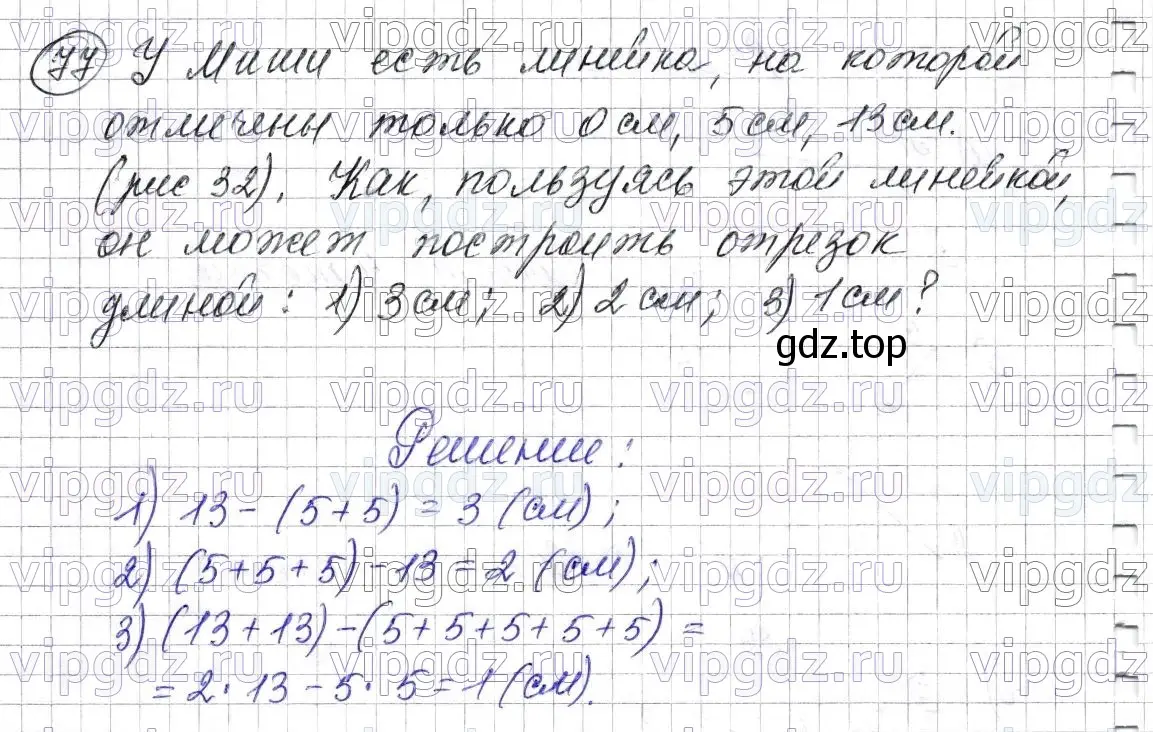 77 У Миши есть линейка, на которой
отмечены только 0 см, 5 см, 13 см.
(рис 32). Как, пользуясь этой линейкой,
он может построить отрезок
длиной: 1) 3 см; 2) 2 см; 3) 1 см?
gdz.top
Решение:
1) 13 - (5+5) = 3 (см);
2) (5+5+5) - 13 = 2 (см);
3) (13+13) - (5+5+5+5+5) =
= 2 · 13 - 5 · 5 = 1 (см).
vipgdz.ru